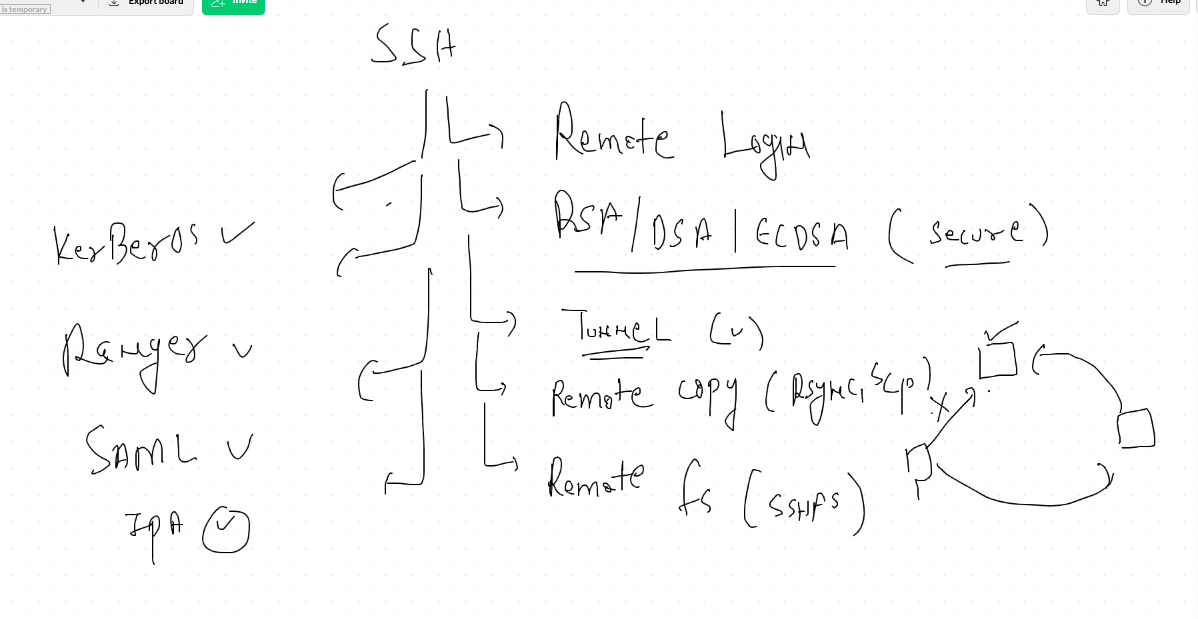 is temporary
Export board
Invite
Help
SSH
Remote Login
RSA/DSA|ECDSA (secure)
Tunnel (v)
Remote copy (Rsync, scp)
Remote fs (SSHFS)
KerBeros ✓
Ranger ✓
SAML ✓
IPA ✓
X